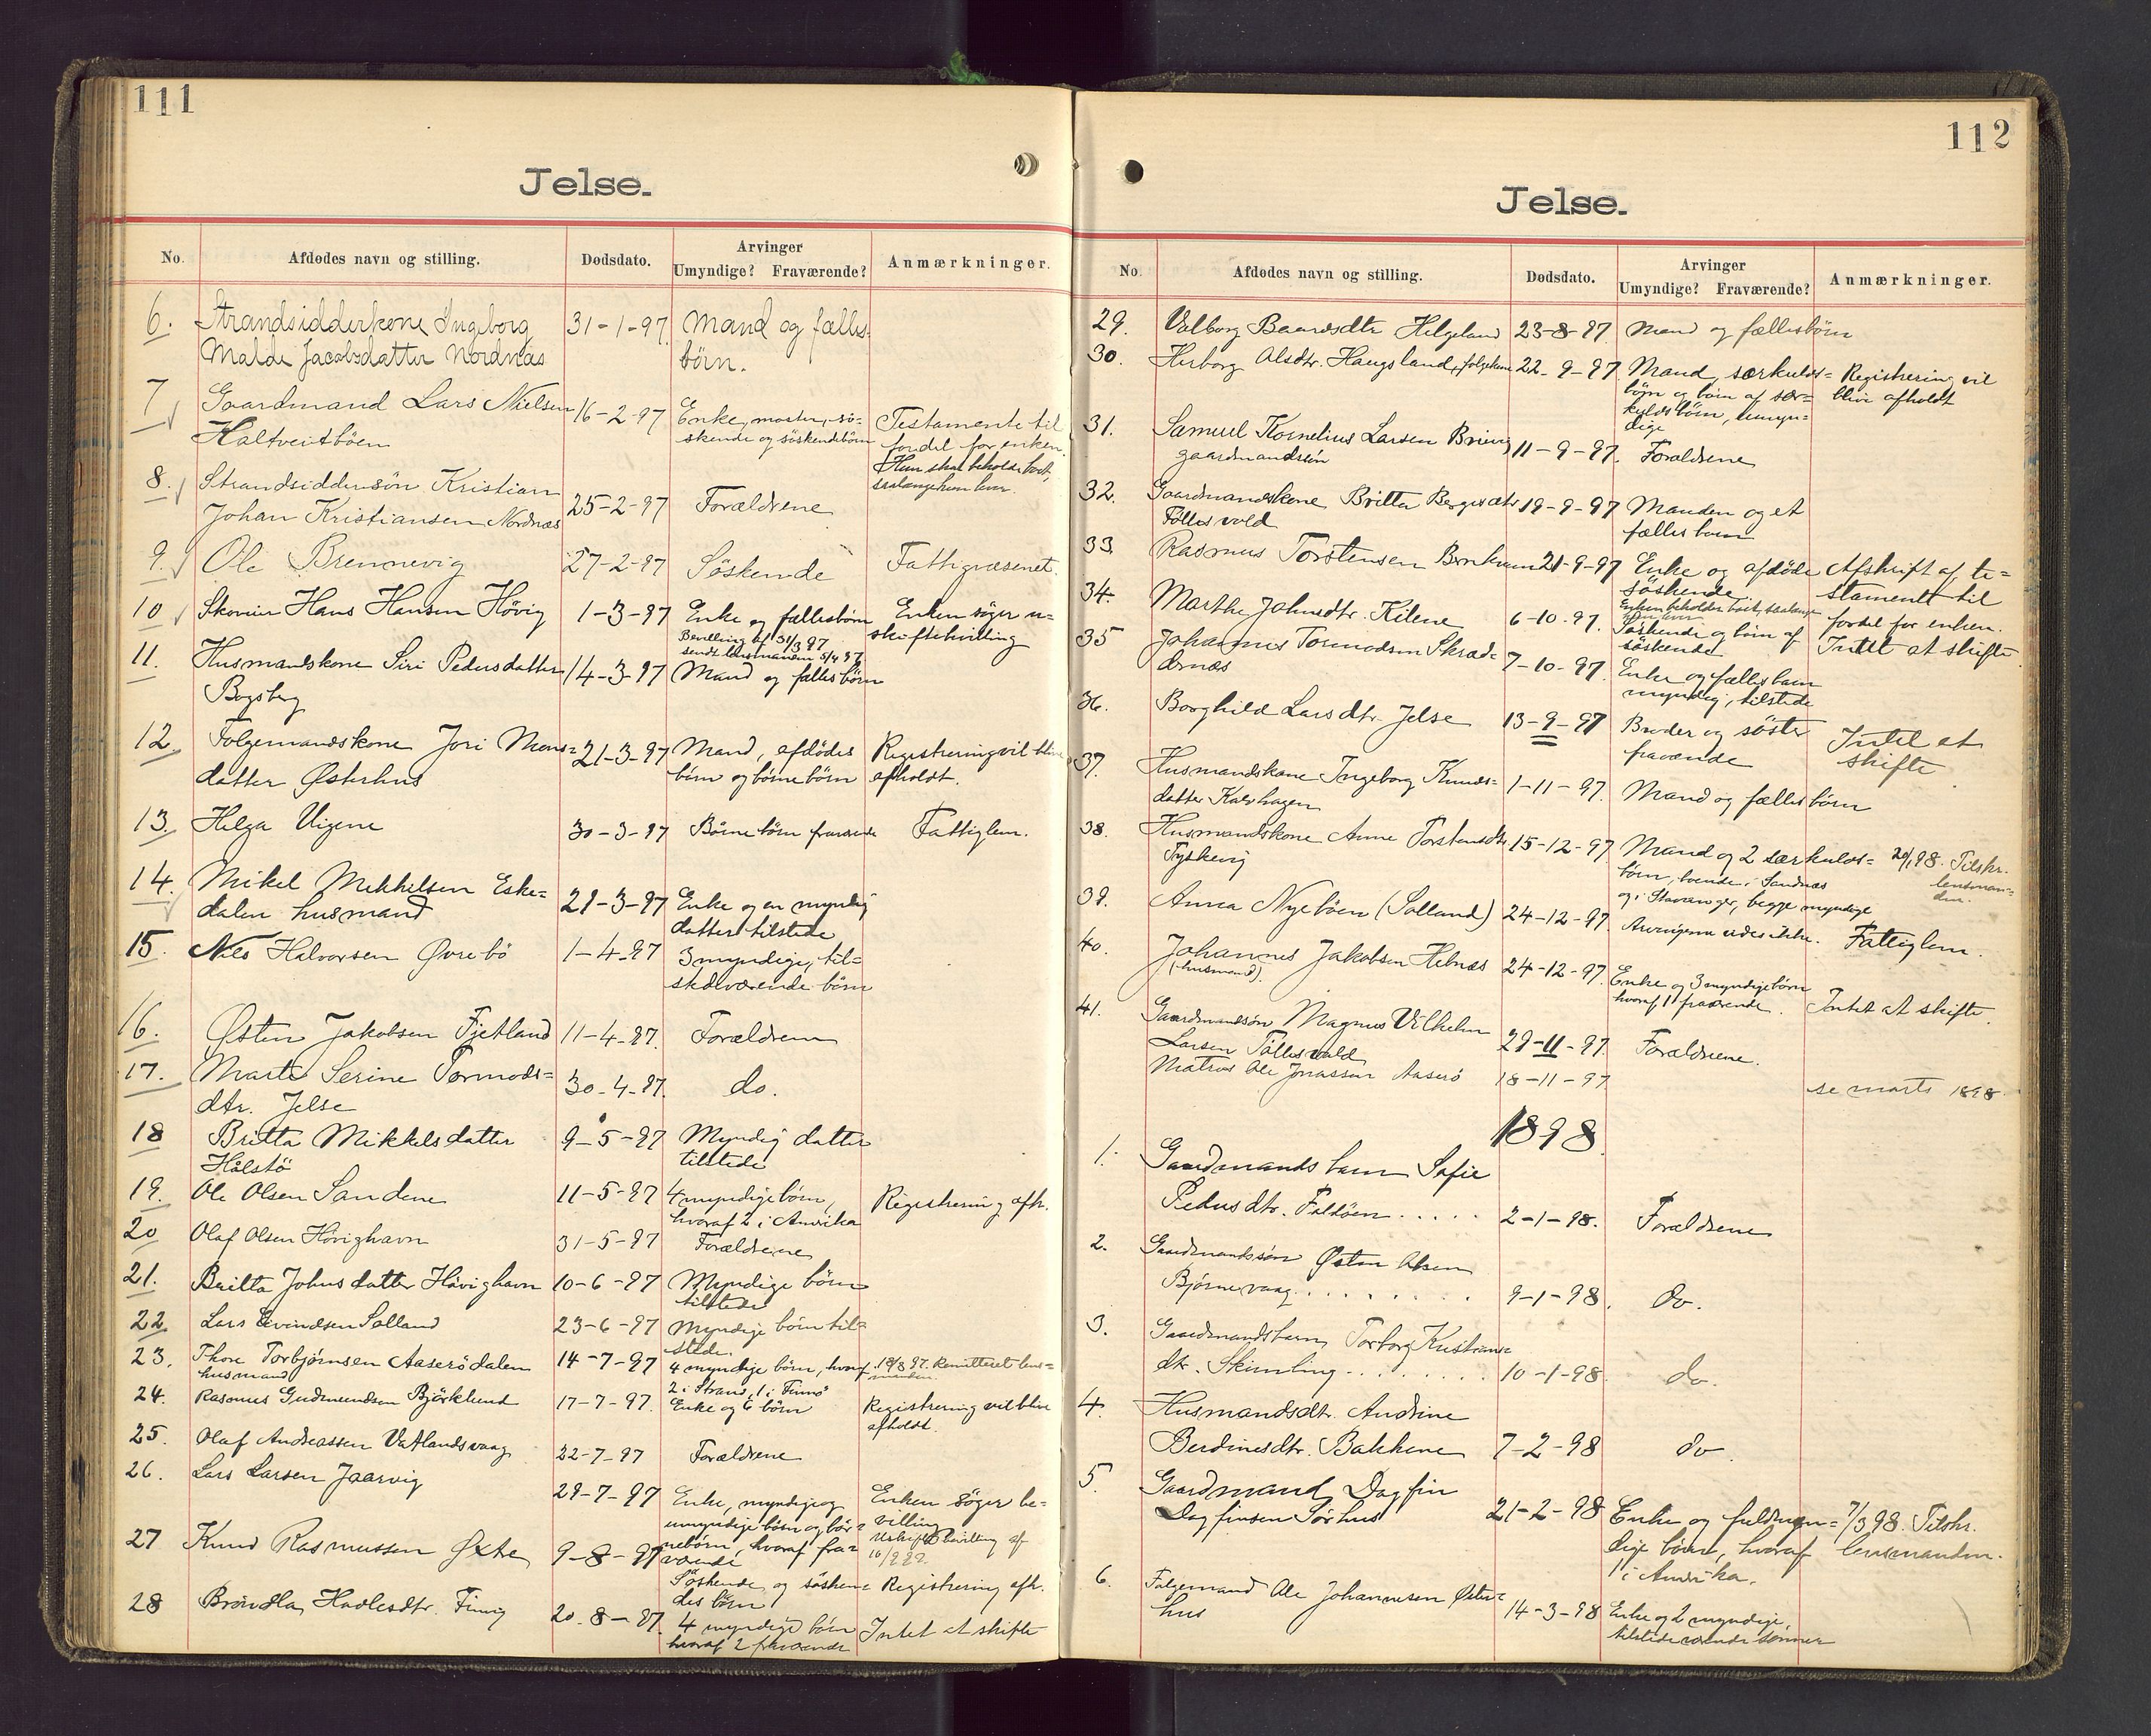 111
Jelse.
No.
Afdødes navn og stilling.
Dødsdato.
Arvinger
Umyndige? Fraværende?
Anmærkninger.
6. Strandsidderkone Ingeborg 31-1-97 Mand og fælles-
Malde Jacobsdatter Nordnæs børn.
7 Gaardmand Lars Nielsen 16-2-97 Enke, moster, sö- Testamente til
Haltveitböen skende og söskendebörn fordel for enken.
Hun skal beholde boet,
saalænge hun lever.
8. Strandsiddersön Kristian
Johan Kristiansen Nordnæs 25-2-97 Forældrene
9. Ole Brennevig 27-2-97 Söskende Fattigvæsenet.
10 Hans Hansen Hövig 1-3-97 Enke og fællesbörn Enken söger u-
Bevilling af 31/3 97 skiftebevilling
sendt lensmanden 5/4 97
11. Husmandskone Siri Pedersdatter 14-3-97 Mand og fælles börn
Bogsberg
12. Folgemandskone Jori Mons= 21-3-97 Mand, afdödes Registrering vil blive
datter Østerhus börn og börnebörn afholdt.
13. Helga Vigene 30-3-97 Börnebörn fraværende Fattiglem.
14. Mikel Mikkelsen Eske=
dalen husmand 29-3-97 Enke og en myndig
datter tilstede
15. Nils Halvorsen Øvrebö 1-4-97 3 myndige, til=
stedeværende börn
16. Østen Jakobsen Fjetland 11-4-97. Forældrene
17. Marte Serine Tormods=
dtr. Jelse 30-4-97. do.
18 Britta Mikkelsdatter 9-5-97 Myndig datter
Hålstö tilstede
19. Ole Olsen Sandene 11-5-97 4 myndige börn, Registrering afh.
hvoraf 2 i Amerika
20 Olaf Olsen Hövighavn 31-5-97 Forældrene
21. Britta Johnsdatter Hövighavn 10-6-97 Myndige börn
tilstede
22. Lars Eivindsen Solland 23-6-97 Myndige börn til=
stede.
23. Thore Torbjørnsen Aaserödalen 14-7-97 4 myndige börn, hvoraf 18/8 97. Remitteret lens=
husmand 2 i Strand, 1 i Finnö manden.
24. Rasmus Gudmundsen Björklund 17-7-97. Enke og 6 börn Registrering vil blive
afholdt.
25. Olaf Andreassen Vatlandsvaag 22-7-97 Forældrene
26. Lars Larsen Jaarvig
29-7-97 Enke, myndige og Enken söger be=
umyndige börn og bör= villing
nebörn, hvoraf fra= Uskiftebevilling af
værende
27 Knud Rasmussen Øxte 9-8-97
Söskende og sösken= Registrering afh.
des börn
28 Bröndla Hadlesdtr. Finvig 20-8-97. 4 myndige börn Intet at skifte
hvoraf 2 fraværende
112
Jelse.
No.
Afdødes navn og stilling.
Dødsdato.
Arvinger
Umyndige? Fraværende?
Anmærkninger.
29. Valborg Baardsdtr Helgeland 23-8-97. Mand og fællesbörn
30. Herborg Olsdtr. Haugsland, folgekone 22-9-97 Mand, særkulds= Registrering vil
börn og börn af sær= blive afholdt
kuldsbörn, umyn=
dige
31. Samuel Kornelius Larsen 11-9-97. Forældrene
gaardmandssön
32. Gaardmandskone Britta 19-9-97 Manden og et
Töllesvold fælles barn
33. Rasmus Torstensen 21-9-97 Enke og afdöde Afskrift af te=
söskende. stamente til
Enken beholder boet, saalænge fordel for enken.
hun lever
34. Marthe Johnsdtr. Kilene 6-10-97. Söskende og börn af Intet at skifte
söskende
35 Johannes Tormodsen Skrad=
dernæs 7-10-97. Enke og fælles barn
myndig, tilstede
36. Borghild Larsdtr. Jelse 13-9-97 Broder og söster Intet at
fraværende skifte
37. Husmandskone Ingeborg Knuds= 1-11-97. Mand og fælles börn
datter Kalvhagen
38. Husmandskone Anne Torstensdtr 15-12-97 Mand og 2 særkulds= 20/1 98. Tilskr.
Tyskevig börn, boende i Sandnæs lensman=
og i Stavanger, begge myndige den.
39. Anna Nyeböen (Solland) 24-12-97. Arvingerne vides ikke. Fattiglem.
40. Johannes Jakobsen Hebnæs 24-12-97. Enke og 3 myndige börn
(husmand). hvoraf 1 fraværende. Intet at skifte.
41. Gaardmandssön Magnus Vilhelm
Larsen Töllesvold 29-11-97. Forældrene.
Matros Ole Jonassen Aaserö 18-11-97 se marts 1898
1898
1. Gaardmandsbarn Sofie
Pedersdtr. Foldöen ..... 2-1-98. Forældrene
2. Gaardmandssön Østen Olsen
Bjørnevaag ........ 9-1-98. do.
3. Gaardmandsbarn Torborg Kristians=
dtr. Skimling ........ 10-1-98. do.
4. Husmandsdtr. Andrine
Berdinesdtr. Bakkene 7-2-98 do.
5. Gaardmand Dagfin
Dagfinsen Sørhus 21-2-98 Enke og fuldmyn= 7/3 98. Tilskr.
dige börn, hvoraf lensmanden.
1 i Amerika.
6. Folgemand Ole Johannesen Øster=
hus 14-3-98 Enke og 2 myndige,
tilstedeværende sönner